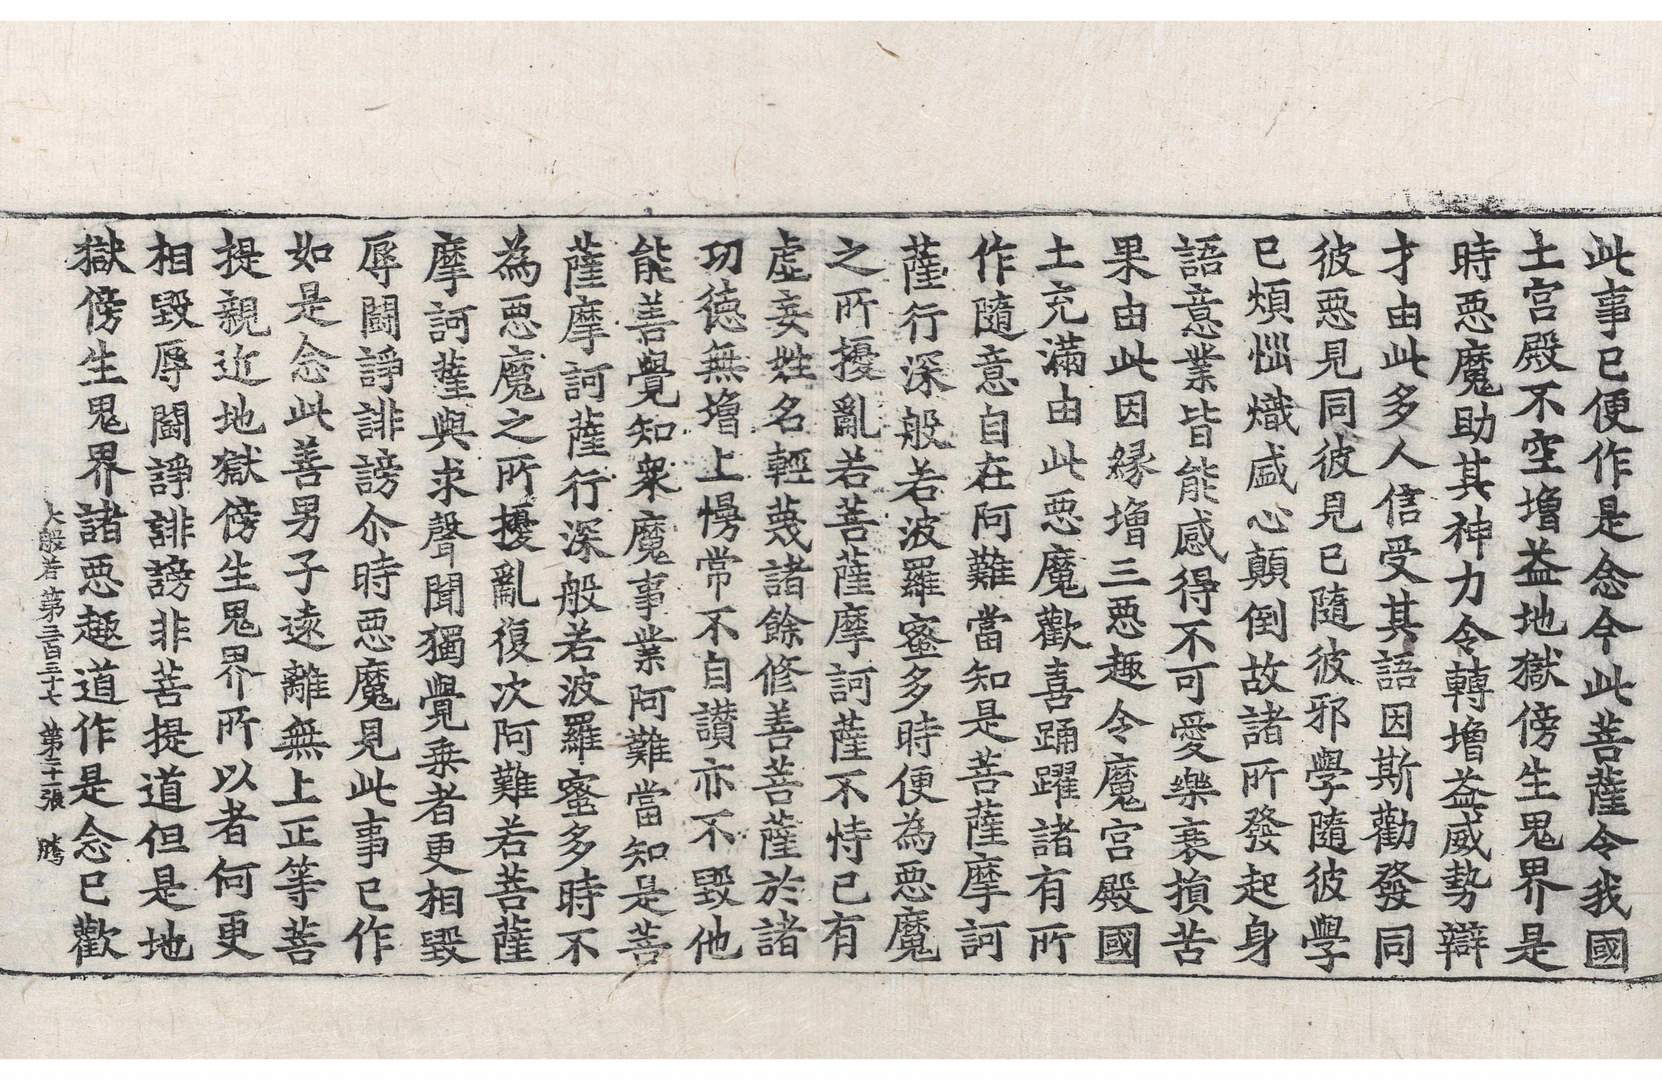 此事已便作是念今此菩薩令我國
土宮殿不空增益地獄傍生鬼界是
時惡魔助其神力令轉增益威勢辯
才由此多人信受其語因斯勸發同
彼惡見同彼見已隨彼邪學隨彼學
已煩惱熾盛心顛倒故諸所發起身
語意業皆能感得不可愛樂衰損苦
果由此因緣增三惡趣令魔宮殿國
土充滿由此惡魔歡喜踊躍諸有所
作隨意自在阿難當知是菩薩摩訶
薩行深般若波羅蜜多時便為惡魔
之所擾亂若菩薩摩訶薩不恃己有
虛妄姓名輕蔑諸餘修善菩薩於諸
功德無增上慢常不自讃亦不毀他
能善覺知衆魔事業阿難當知是菩
薩摩訶薩行深般若波羅蜜多時不
為惡魔之所擾亂復次阿難若菩薩
摩訶薩與求聲聞獨覺乘者更相毀
辱鬪諍誹謗尒時惡魔見此事已作
如是念此善男子遠離無上正等菩
提親近地獄傍生鬼界所以者何更
相毀辱鬪諍誹謗非菩提道但是地
獄傍生鬼界諸惡趣道作是念已歡
大般若第三百三十七 第二十張 騰